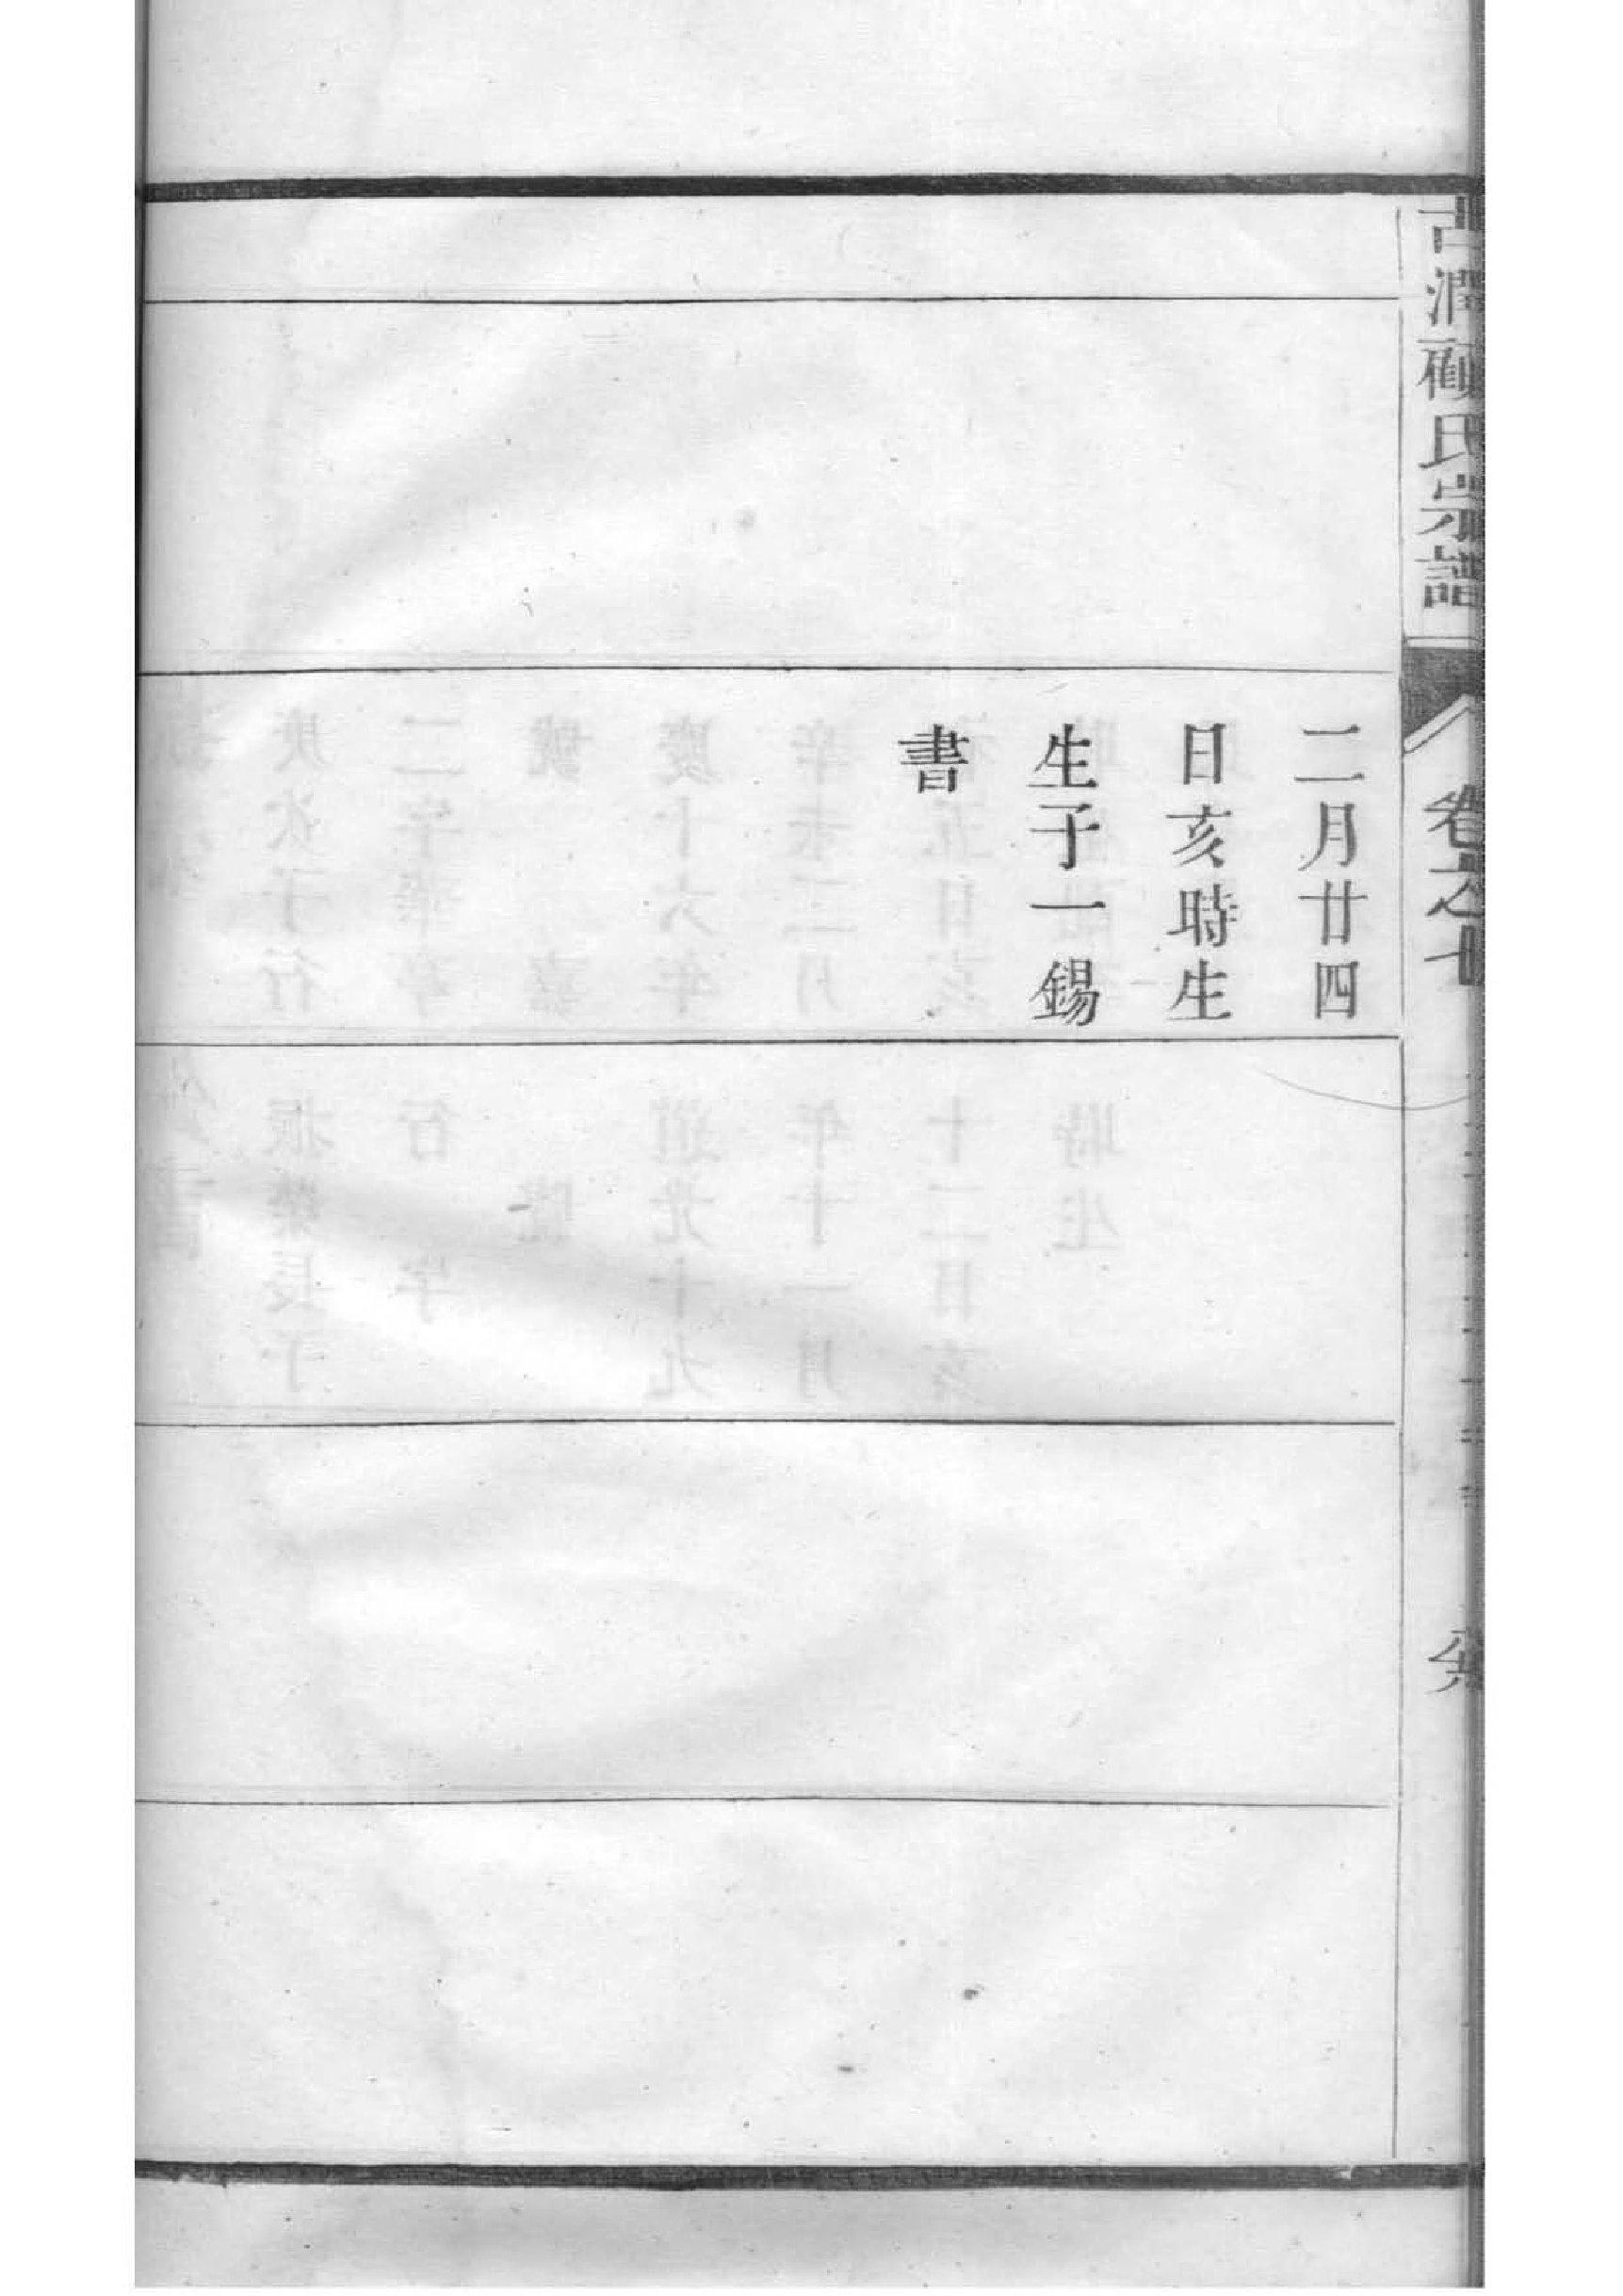 古潤顧氏宗譜
卷之七
二月廿四
日亥時生
生子一錫
書